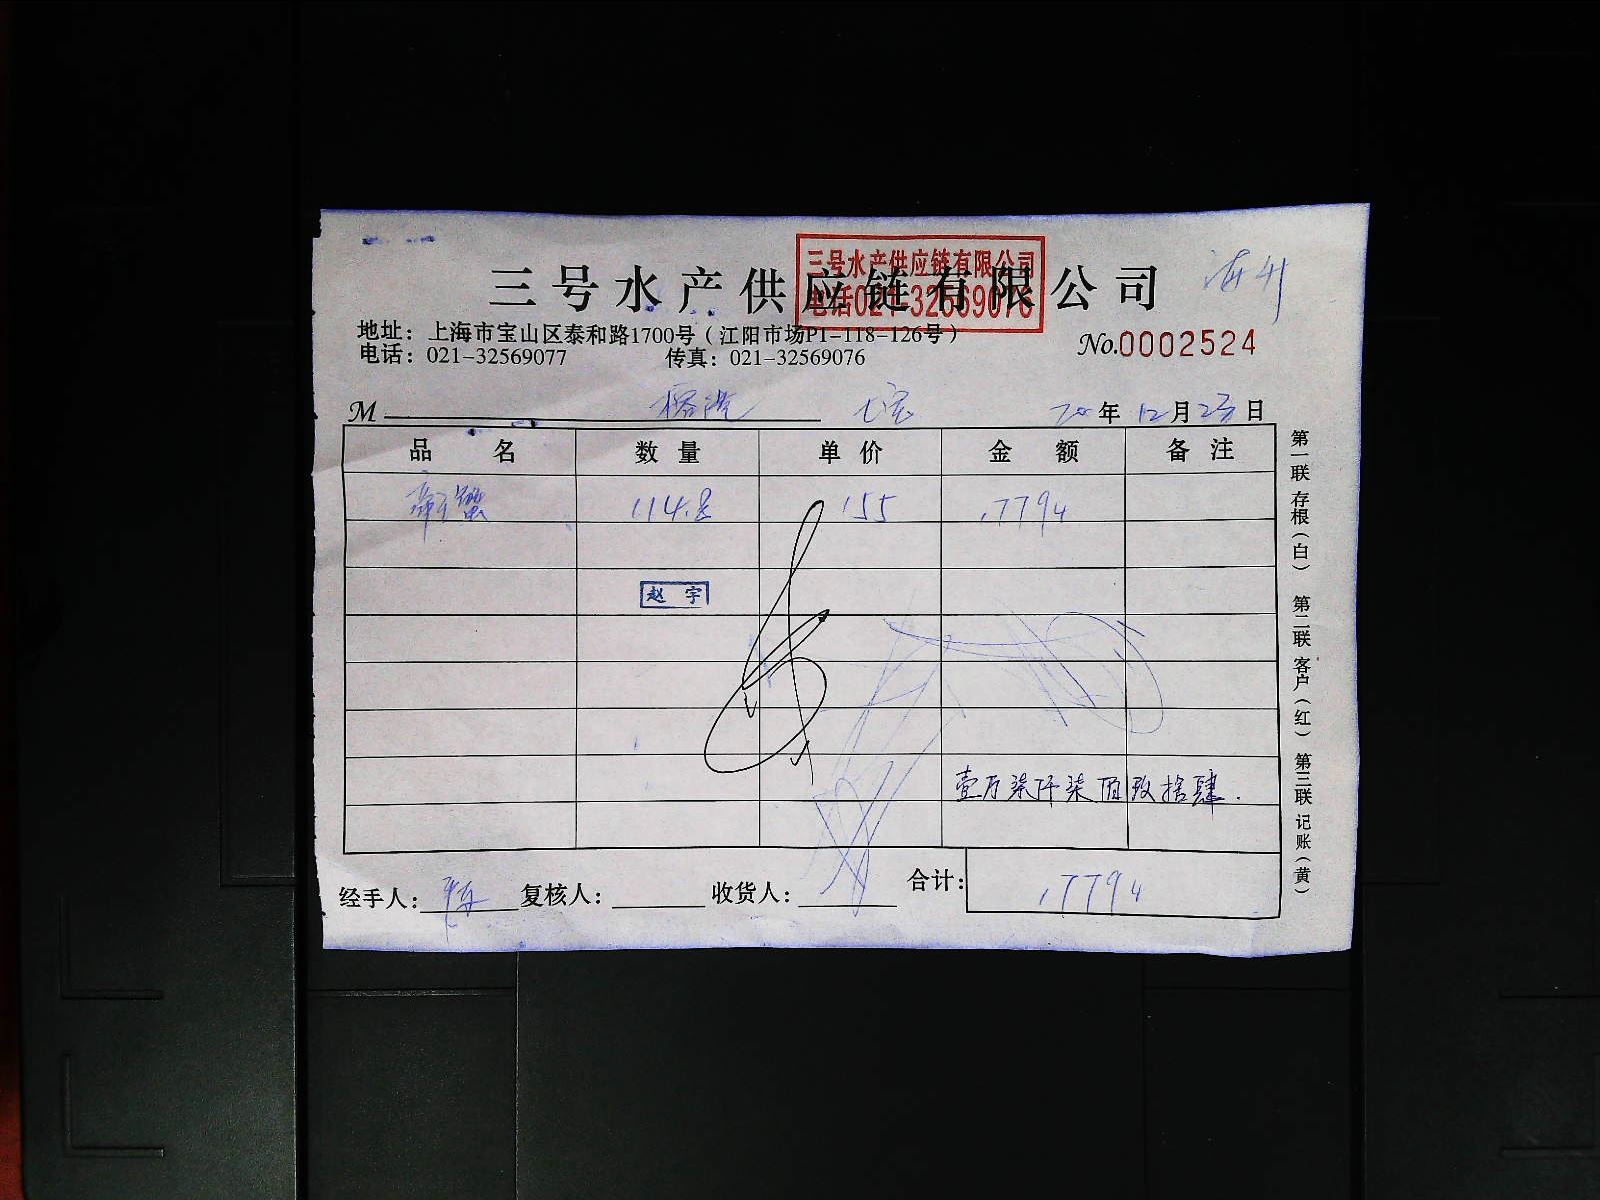 三号水产供应链有限公司
三号水产供应链有限公司
电话021-32569076
地址：上海市宝山区泰和路1700号（江阳市场P1-118-126号）
No.0002524
电话：021-32569077 传真：021-32569076
M 七宝 20年12月23日
品名 数量 单价 金额 备注
帝王蟹 114.8 155 17794
赵宇
壹万柒仟柒佰玖拾肆.
经手人： 复核人： 收货人： 合计：17794
第一联存根（白） 第二联客户（红） 第三联记账（黄）